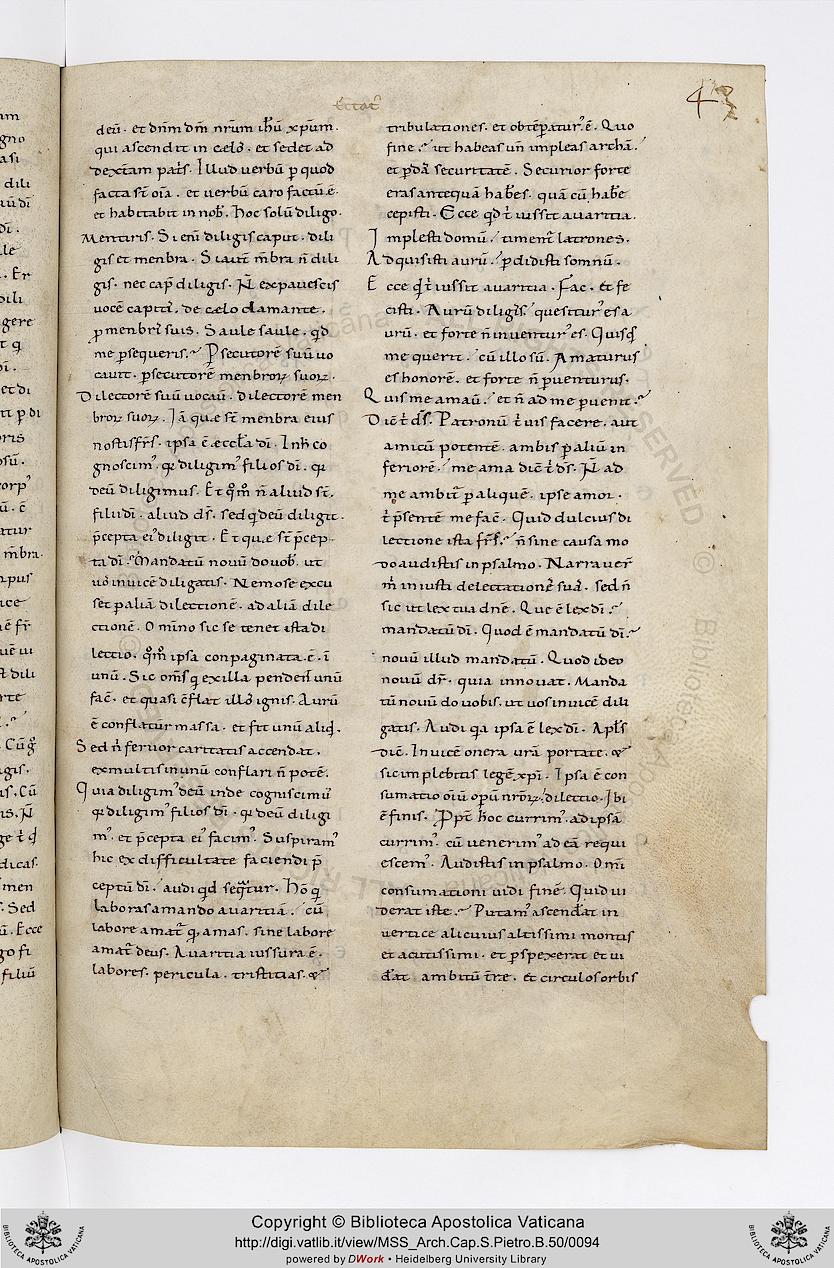 Tractat'
43
deū. et dn̄m dm̄ nr̄um ih̄ū xp̄um.
qui ascendit in cęlo. et sedet ad
dextam pat̄s. Illud verbū p quod
facta st̄ oīa. et uerbū caro factū ē.
et habitabit in nob'. hoc solū diligo.
Mentiris. Si enī diligis caput. dili
gis et menbra. Si aut̄ m̄bra n̄ dili
gis. nec cap̄ diligis. N̄ expauescis
vocē capiti'. de cęlo clamante.
p menbri' suis. Saule saule. qd
me psequeris. Psecutorē suū uo
cauit. psecutorē menbroꝝ suoꝝ.
Dilectorē suū uocaū. dilectorē men
broꝝ suoꝝ. Iā que st̄ menbra eius
nostis fr̄s. ipsa ē ęccła dī. In h̄ co
gnoscim'. qr diligim' filios dī. qr
deū diligimus. Et qm̄m n̄ aliud st̄.
filii dī. aliud ds̄. sed q deū diligit.
p̄cepta ei' diligit. Et quę st̄ p̄cep
ta dī. Mandatū nouū do uob'. ut
uos inuicē diligatis. Nemo se excu
set p aliā dilectionē. ad aliā dile
ctionē. Omīno sic se tenet ista di
lectio. qm̄m ipsa conpaginata. ē. ī
unū. Sic oms̄ q ex illa pendent̄ unū
fac̄. et quasi c̄flat illos ignis. Aurū
ē conflatur massa. et fit unū aliqd.
Sed n̄ feruor caritatis accendat.
ex multis in unū conflari n̄ potē.
Quia diligim' deū inde cogniscimu'
qr diligim' filios dī. qr deū diligi
m'. et p̄cepta ei' facim'. Suspiram'
hic ex difficultate faciendi p̄
ceptū dī. audi qd seqtur. Hō q
laboras amando auaritiā. cū
labore amat̄ q amas. sine labore
amat̄ deus. Auaritia iussura ē.
labores. pericula. tristitias. &
tribulationes. et obtēpatur' ē. Quo
fine. ut habeas un̄ impleas archā.
et pdā securitatē. Securior forte
eras antequā habes. quā cū habe
cepisti. Ecce qd t̄ iussit auaritia.
Implesti domū. timent̄ latrones.
Adquisisti aurū. pdidisti somnū.
Ecce qd t̄ iussit auaritia. Fac. et fe
cisti. Aurū diligis. quesitur' es a
urū. et forte n̄ inuentur' es. Quisq
me querit. cū illo sū. Amaturus
es honorē. et forte n̄ puenturus.
Quis me amaū. et n̄ ad me puenit.
Dic̄ t̄ ds̄. Patronū t̄ uis facere. aut
amicū potentē. ambis p aliū in
feriorē. me ama dic̄ t̄ ds̄. N̄ ad
me ambit̄ p aliquē. ipse amor.
t̄ p̄sentē me fac̄. Quid dulcius di
lectione ista fr̄s. n̄ sine causa mo
do audistis in psalmo. Narraver̄
m̄ iniusti delectationes suas. sed n̄
sic ut lex tua dn̄e. Que ē lex dī.
mandatū dī. Quod ē mandatū dī.
nouū illud mandatū. Quod ideo
nouū dr̄. quia innouat. Manda
tū nouū do uobis. ut uos inuicē dili
gatis. Audi qa ipsa ē lex dī. Apl's
dic̄. Inuicē onera urā portate. &
sic implebitis legē xpī. Ipsa ē con
sumatio oīū opūm nr̄oꝝ. dilectio. Ibi
ē finis. Ppt̄ hoc currim'. ad ipsā
currim'. cū uenerim' ad eā requi
escem'. Audistis in psalmo. Omī
consumationi uidi finē. Quid ui
derat iste. Putam' ascendat in
uertice alicuius altissimi montis
et acutissimi. et pspexerat et ui
dat ambitū tr̄re. et circulos orbis
Copyright © Biblioteca Apostolica Vaticana
http://digi.vatlib.it/view/MSS_Arch.Cap.S.Pietro.B.50/0094
powered by DWork • Heidelberg University Library